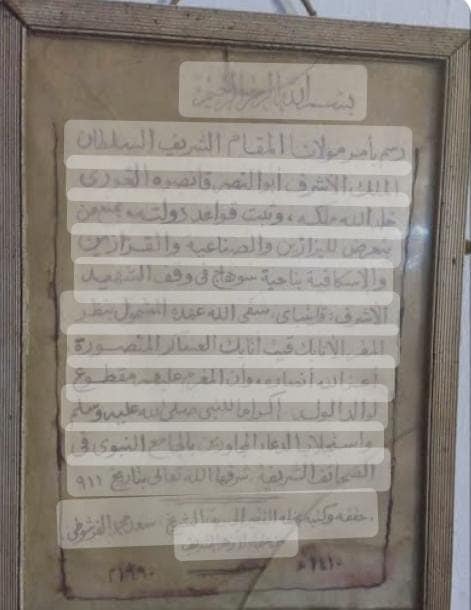 بسم الله الرحمن الرحيم
رسم بأمر مولانا المقام الشريف السلطان
الملك الأشرف أبو النصر قانصوه الغورى
خلد الله ملكه، وثبت قواعد دولته
يتعرض للبزازين والصناعية والقزازين
والاسكافية بناحية سوهاج فى وقف الشهيد
الأشرف قايتباى سقى الله عهده المشمول بنظر
المقر الأتابك قيت أتابك العساكر المنصورة
أعز الله أنصاره، وأن المغرم عليهم مقطوع
إكراما للنبى صلى الله عليه وسلم
الدعاء بالجامع النبوى فى
الصحائف الشريفة شرفها الله تعالى بتاريخ ٩١١
حققه وكتبه سعد القرشوطى
١٤١٠ هـ ١٩٩٠ م